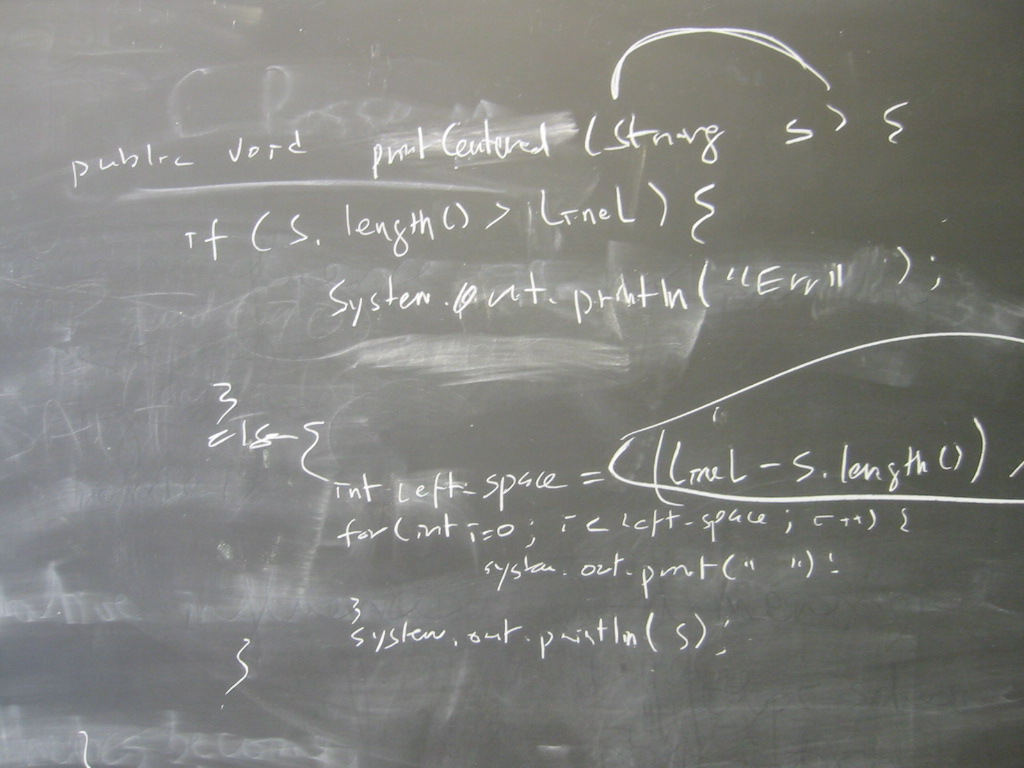 public void printCentered (String s) {
if (s.length() > lineL) {
System.out.println(""Err" );
}
else {
int left-space = ((lineL - s.length()) /
for(int i=0; i< left-space; i++) {
system.out.print(" ");
}
system.out.println(s);
}
}